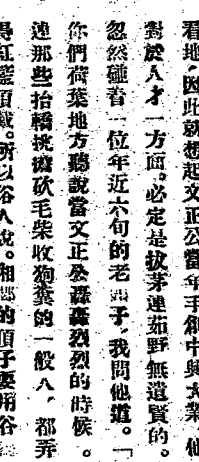 看地。因此就想起文正公當年手創中興大業。他
對於人才一方面。必定是拔茅連茹野無遺賢的。
忽然碰着一位年近六旬的老子。我問他道。「
你們荷葉地方聽說當文正公轟轟烈烈的時候。
連那些抬轎挑擔砍毛柴收狗糞的一般人。都弄
紅藍頂戴。所以俗人說。湘鄉的頂子要用谷